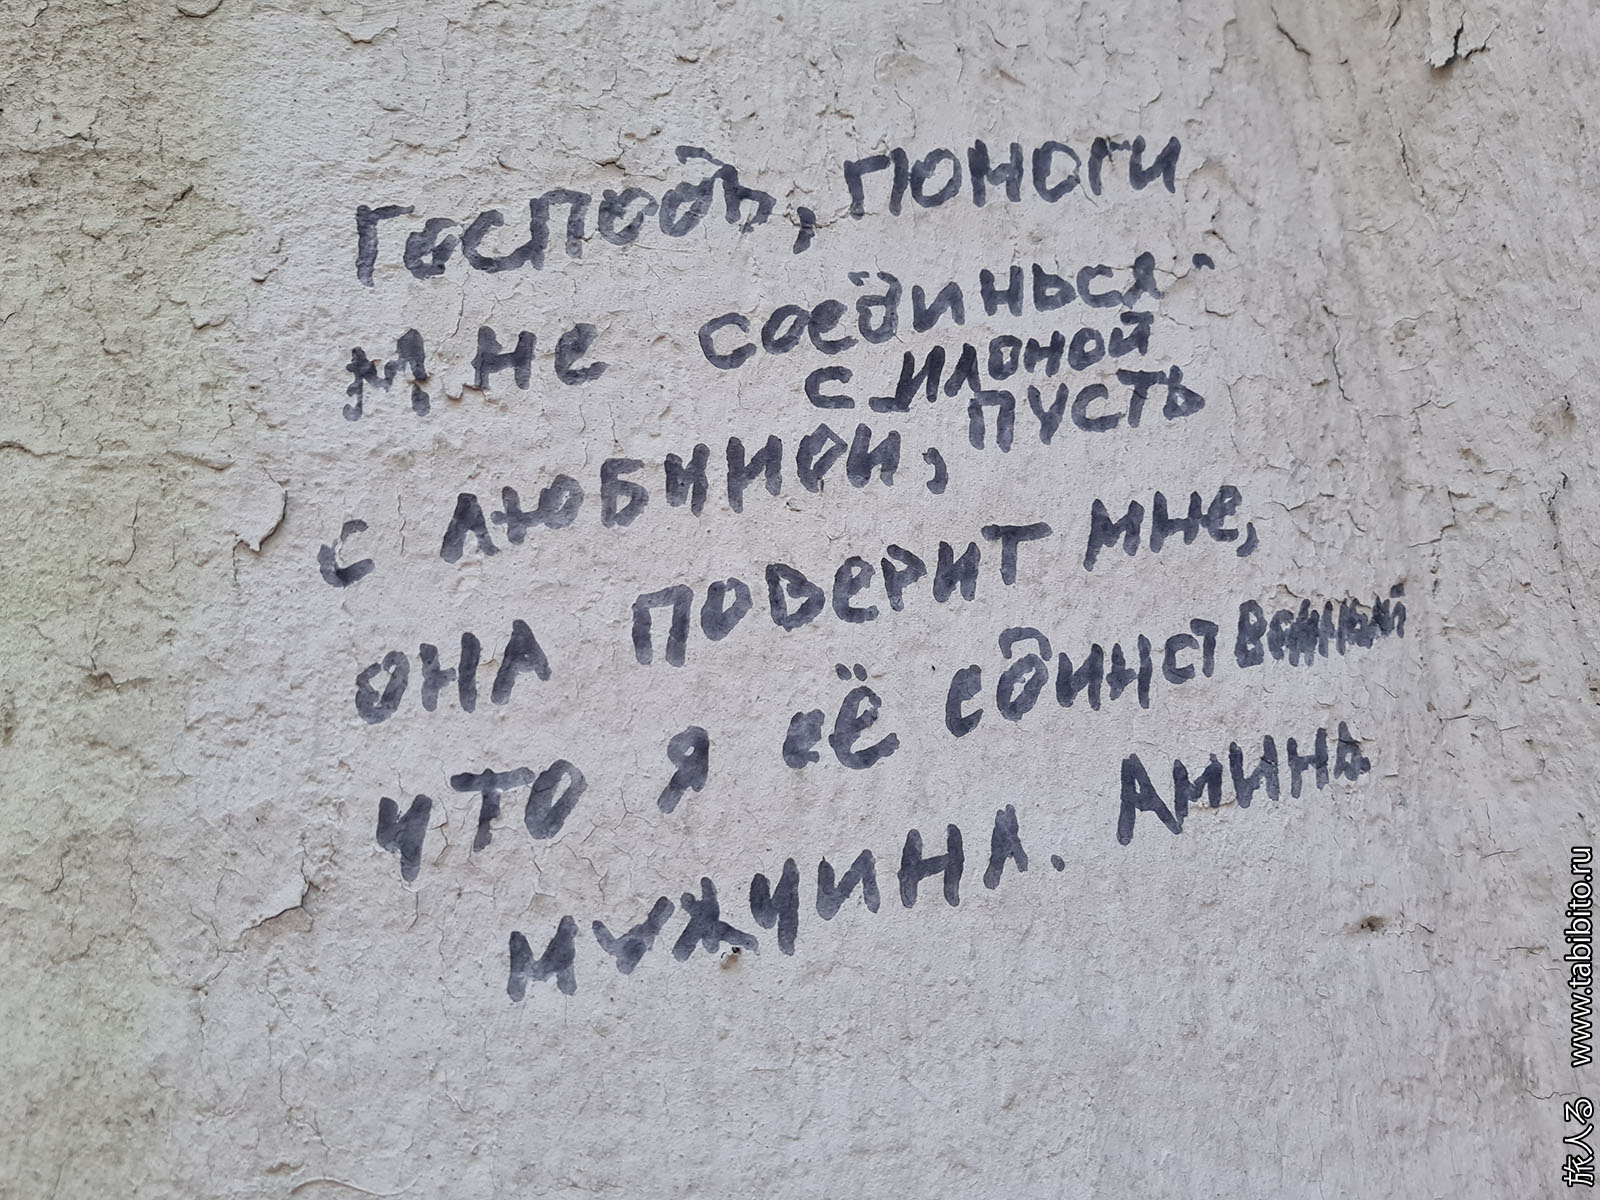 Господь, помоги
мне соединься
с Илоной
с любимой, пусть
она поверит мне,
что я её единственный
мужчина. Аминь
www.tabibito.ru
旅人る